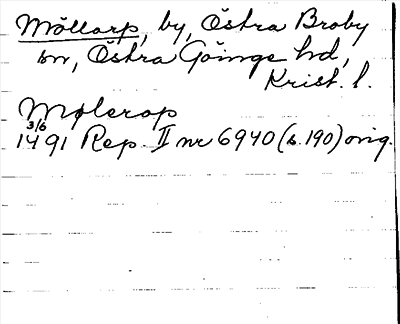 Möllarp, by, Östra Broby
sn, Östra Göinge hd,
Krist. l.
Mølerop
3/6
1491 Rep. II nr 6940 (s. 190) orig.